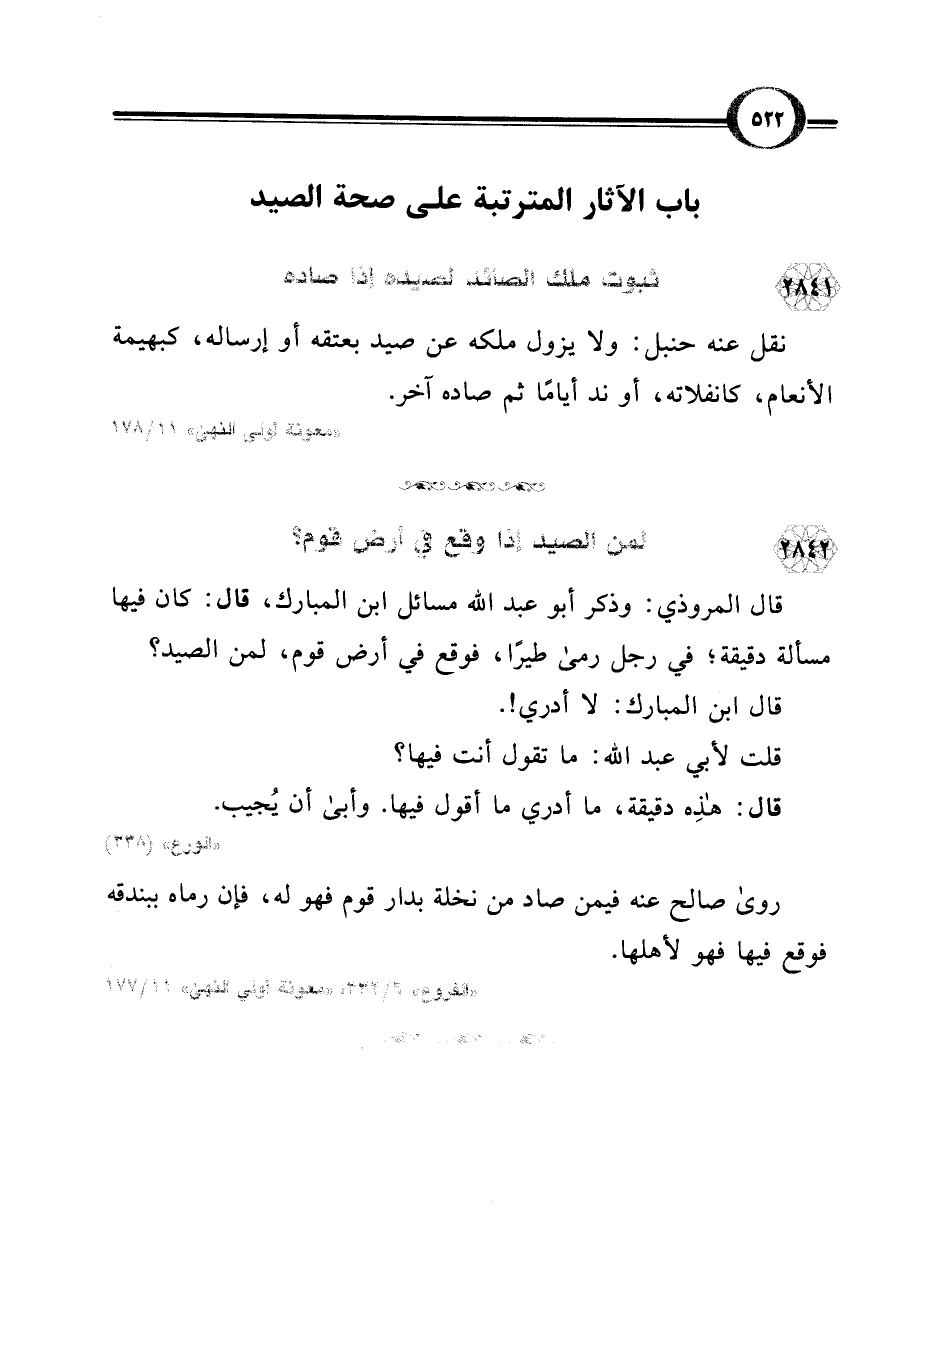 ٥٢٢
باب الآثار المترتبة على صحة الصيد
٢٨٤١ ثبوت ملك الصائد لصيده إذا صاده
نقل عنه حنبل: ولا يزول ملكه عن صيد بعتقه أو إرساله، كبهيمة
الأنعام، كانفلاته، أو ند أيامًا ثم صاده آخر.
«معونة أولي النهى» ١٧٨/١١
٢٨٤٢ لمن الصيد إذا وقع في أرض قوم؟
قال المروذي: وذكر أبو عبد الله مسائل ابن المبارك، قال: كان فيها
مسألة دقيقة؛ في رجل رمىٰ طيرًا، فوقع في أرض قوم، لمن الصيد؟
قال ابن المبارك: لا أدري!.
قلت لأبي عبد الله: ما تقول أنت فيها؟
قال: هٰذِه دقيقة، ما أدري ما أقول فيها. وأبىٰ أن يُجيب.
«الورع» (٣٣٨)
روىٰ صالح عنه فيمن صاد من نخلة بدار قوم فهو له، فإن رماه ببندقه
فوقع فيها فهو لأهلها.
«الفروع» ٣٣٢/٦، «معونة أولي النهى» ١٧٧/١١